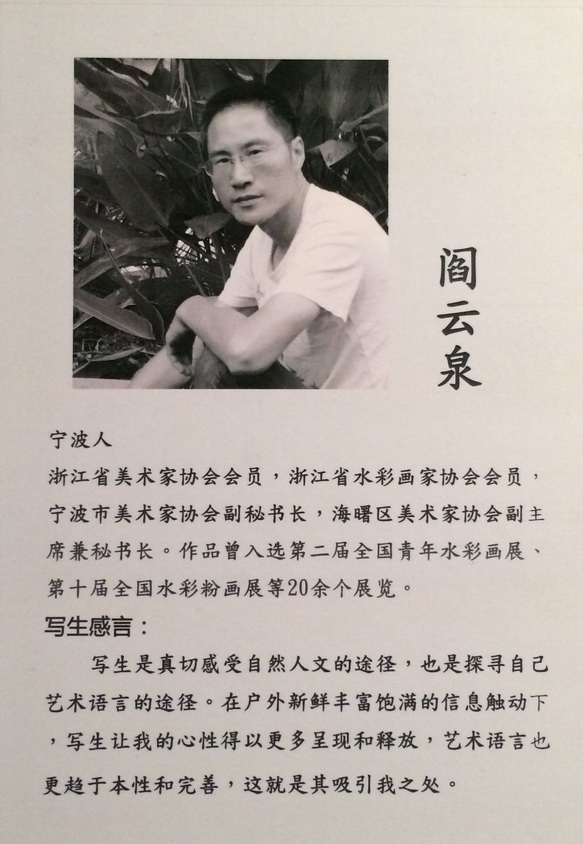 阎云泉
宁波人
浙江省美术家协会会员，浙江省水彩画家协会会员，
宁波市美术家协会副秘书长，海曙区美术家协会副主
席兼秘书长。作品曾入选第二届全国青年水彩画展、
第十届全国水彩粉画展等20余个展览。
写生感言：
写生是真切感受自然人文的途径，也是探寻自己
艺术语言的途径。在户外新鲜丰富饱满的信息触动下
，写生让我的心性得以更多呈现和释放，艺术语言也
更趋于本性和完善，这就是其吸引我之处。